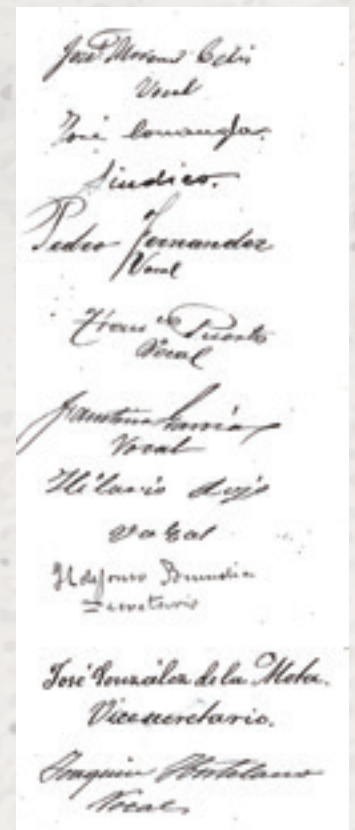 José Moreno Celis
Vocal
José Comangla.
Síndico.
Pedro Fernandez
Vocal
Franco Puente
Vocal
Faustino García
Vocal
Hilario
Vocal
Ildefonso
Secretario
José González de la Mota.
Vicesecretario.
Joaquin Hortelano
Vocal